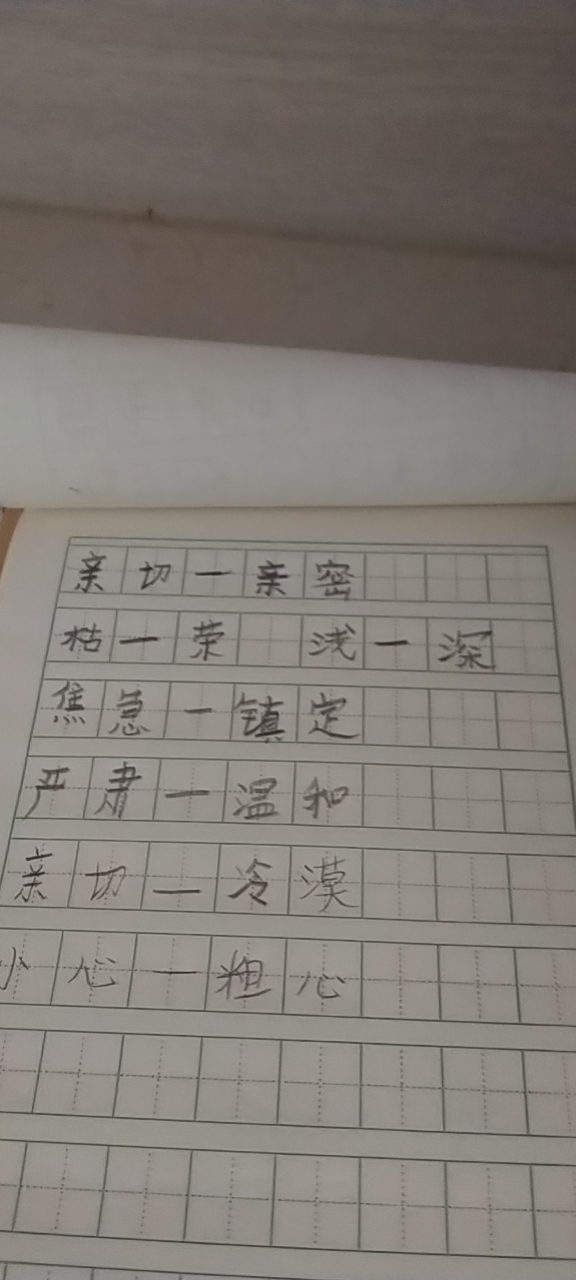 亲切一亲密
枯一荣 浅一深
焦急一镇定
严肃一温和
亲切一冷漠
小心一粗心